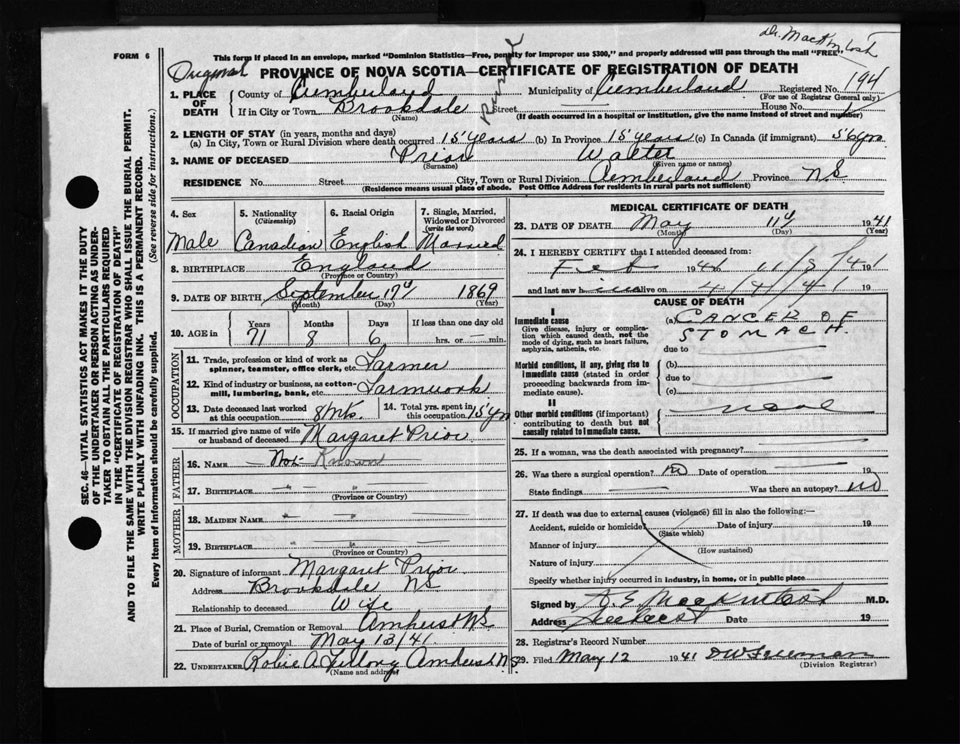 Dr. MacKintosh
FORM 6
This form if placed in an envelope, marked "Dominion Statistics—Free, penalty for improper use $300," and properly addressed will pass through the mail "FREE."
Original
PROVINCE OF NOVA SCOTIA—CERTIFICATE OF REGISTRATION OF DEATH
1. PLACE OF DEATH
County of Cumberland Municipality of Cumberland Registered No. 194
(For use of Registrar General only)
If in City or Town Brookdale Street House No.
(Name) (If death occurred in a hospital or institution, give its name instead of street and number)
2. LENGTH OF STAY (in years, months and days)
(a) In City, Town or Rural Division where death occurred 15 years (b) In Province 15 years (c) In Canada (if immigrant) 56 yrs
3. NAME OF DECEASED Prior Walter
(Surname) (Given name or names)
RESIDENCE No. Street City, Town or Rural Division Cumberland Province N S
(Residence means usual place of abode. Post Office Address for residents in rural parts not sufficient)
4. Sex
Male
5. Nationality
(Citizenship)
Canadian
6. Racial Origin
English
7. Single, Married, Widowed or Divorced
(write the word)
Married
8. BIRTHPLACE England
(Province or Country)
9. DATE OF BIRTH September 17th 1869
(Month) (Day) (Year)
10. AGE in
Years Months Days If less than one day old
71 8 6 hrs. or min.
OCCUPATION
11. Trade, profession or kind of work as spinner, teamster, office clerk, etc. Farmer
12. Kind of industry or business, as cotton-mill, lumbering, bank, etc. Farmwork
13. Date deceased last worked at this occupation 8 Mts. 14. Total yrs. spent in this occupation 15 yrs
15. If married give name of wife or husband of deceased Margaret Prior
FATHER
16. NAME Not Known
17. BIRTHPLACE " "
(Province or Country)
MOTHER
18. MAIDEN NAME " "
19. BIRTHPLACE " "
(Province or Country)
20. Signature of informant Margaret Prior
Address Brookdale N S
Relationship to deceased Wife
21. Place of Burial, Cremation or Removal Amherst N S
Date of burial or removal May 13/41
22. UNDERTAKER Robie A. Amherst N.S.
(Name and address)
MEDICAL CERTIFICATE OF DEATH
23. DATE OF DEATH May 11th 1941
(Month) (Day) (Year)
24. I HEREBY CERTIFY that I attended deceased from:
Feb 194 11/5/41 191
and last saw h alive on 4/4/41 19
CAUSE OF DEATH
I
Immediate cause
Give disease, injury or complication which caused death, not the mode of dying, such as heart failure, asphyxia, asthenia, etc.
(a) CANCER OF STOMACH.
due to
Morbid conditions, if any, giving rise to immediate cause (stated in order proceeding backwards from immediate cause).
(b)
due to
(c)
II
Other morbid conditions (if important) contributing to death but not causally related to immediate cause.
none
25. If a woman, was the death associated with pregnancy?
26. Was there a surgical operation? no Date of operation 19
State findings Was there an autopsy? no
27. If death was due to external causes (violence) fill in also the following:—
Accident, suicide or homicide Date of injury 19
(State which)
Manner of injury
(How sustained)
Nature of injury
Specify whether injury occurred in industry, in home, or in public place
Signed by MacKintosh M.D.
Address Amherst Date 19
28. Registrar's Record Number
29. Filed May 12 1941 D W Freeman
(Division Registrar)
SEC. 46—VITAL STATISTICS ACT MAKES IT THE DUTY
OF THE UNDERTAKER OR PERSON ACTING AS UNDER-
TAKER TO OBTAIN ALL THE PARTICULARS REQUIRED
IN THE "CERTIFICATE OF REGISTRATION OF DEATH"
AND TO FILE THE SAME WITH THE DIVISION REGISTRAR WHO SHALL ISSUE THE BURIAL PERMIT.
WRITE PLAINLY WITH UNFADING INK. THIS IS A PERMANENT RECORD.
Every item of Information should be carefully supplied. (See reverse side for instructions.)